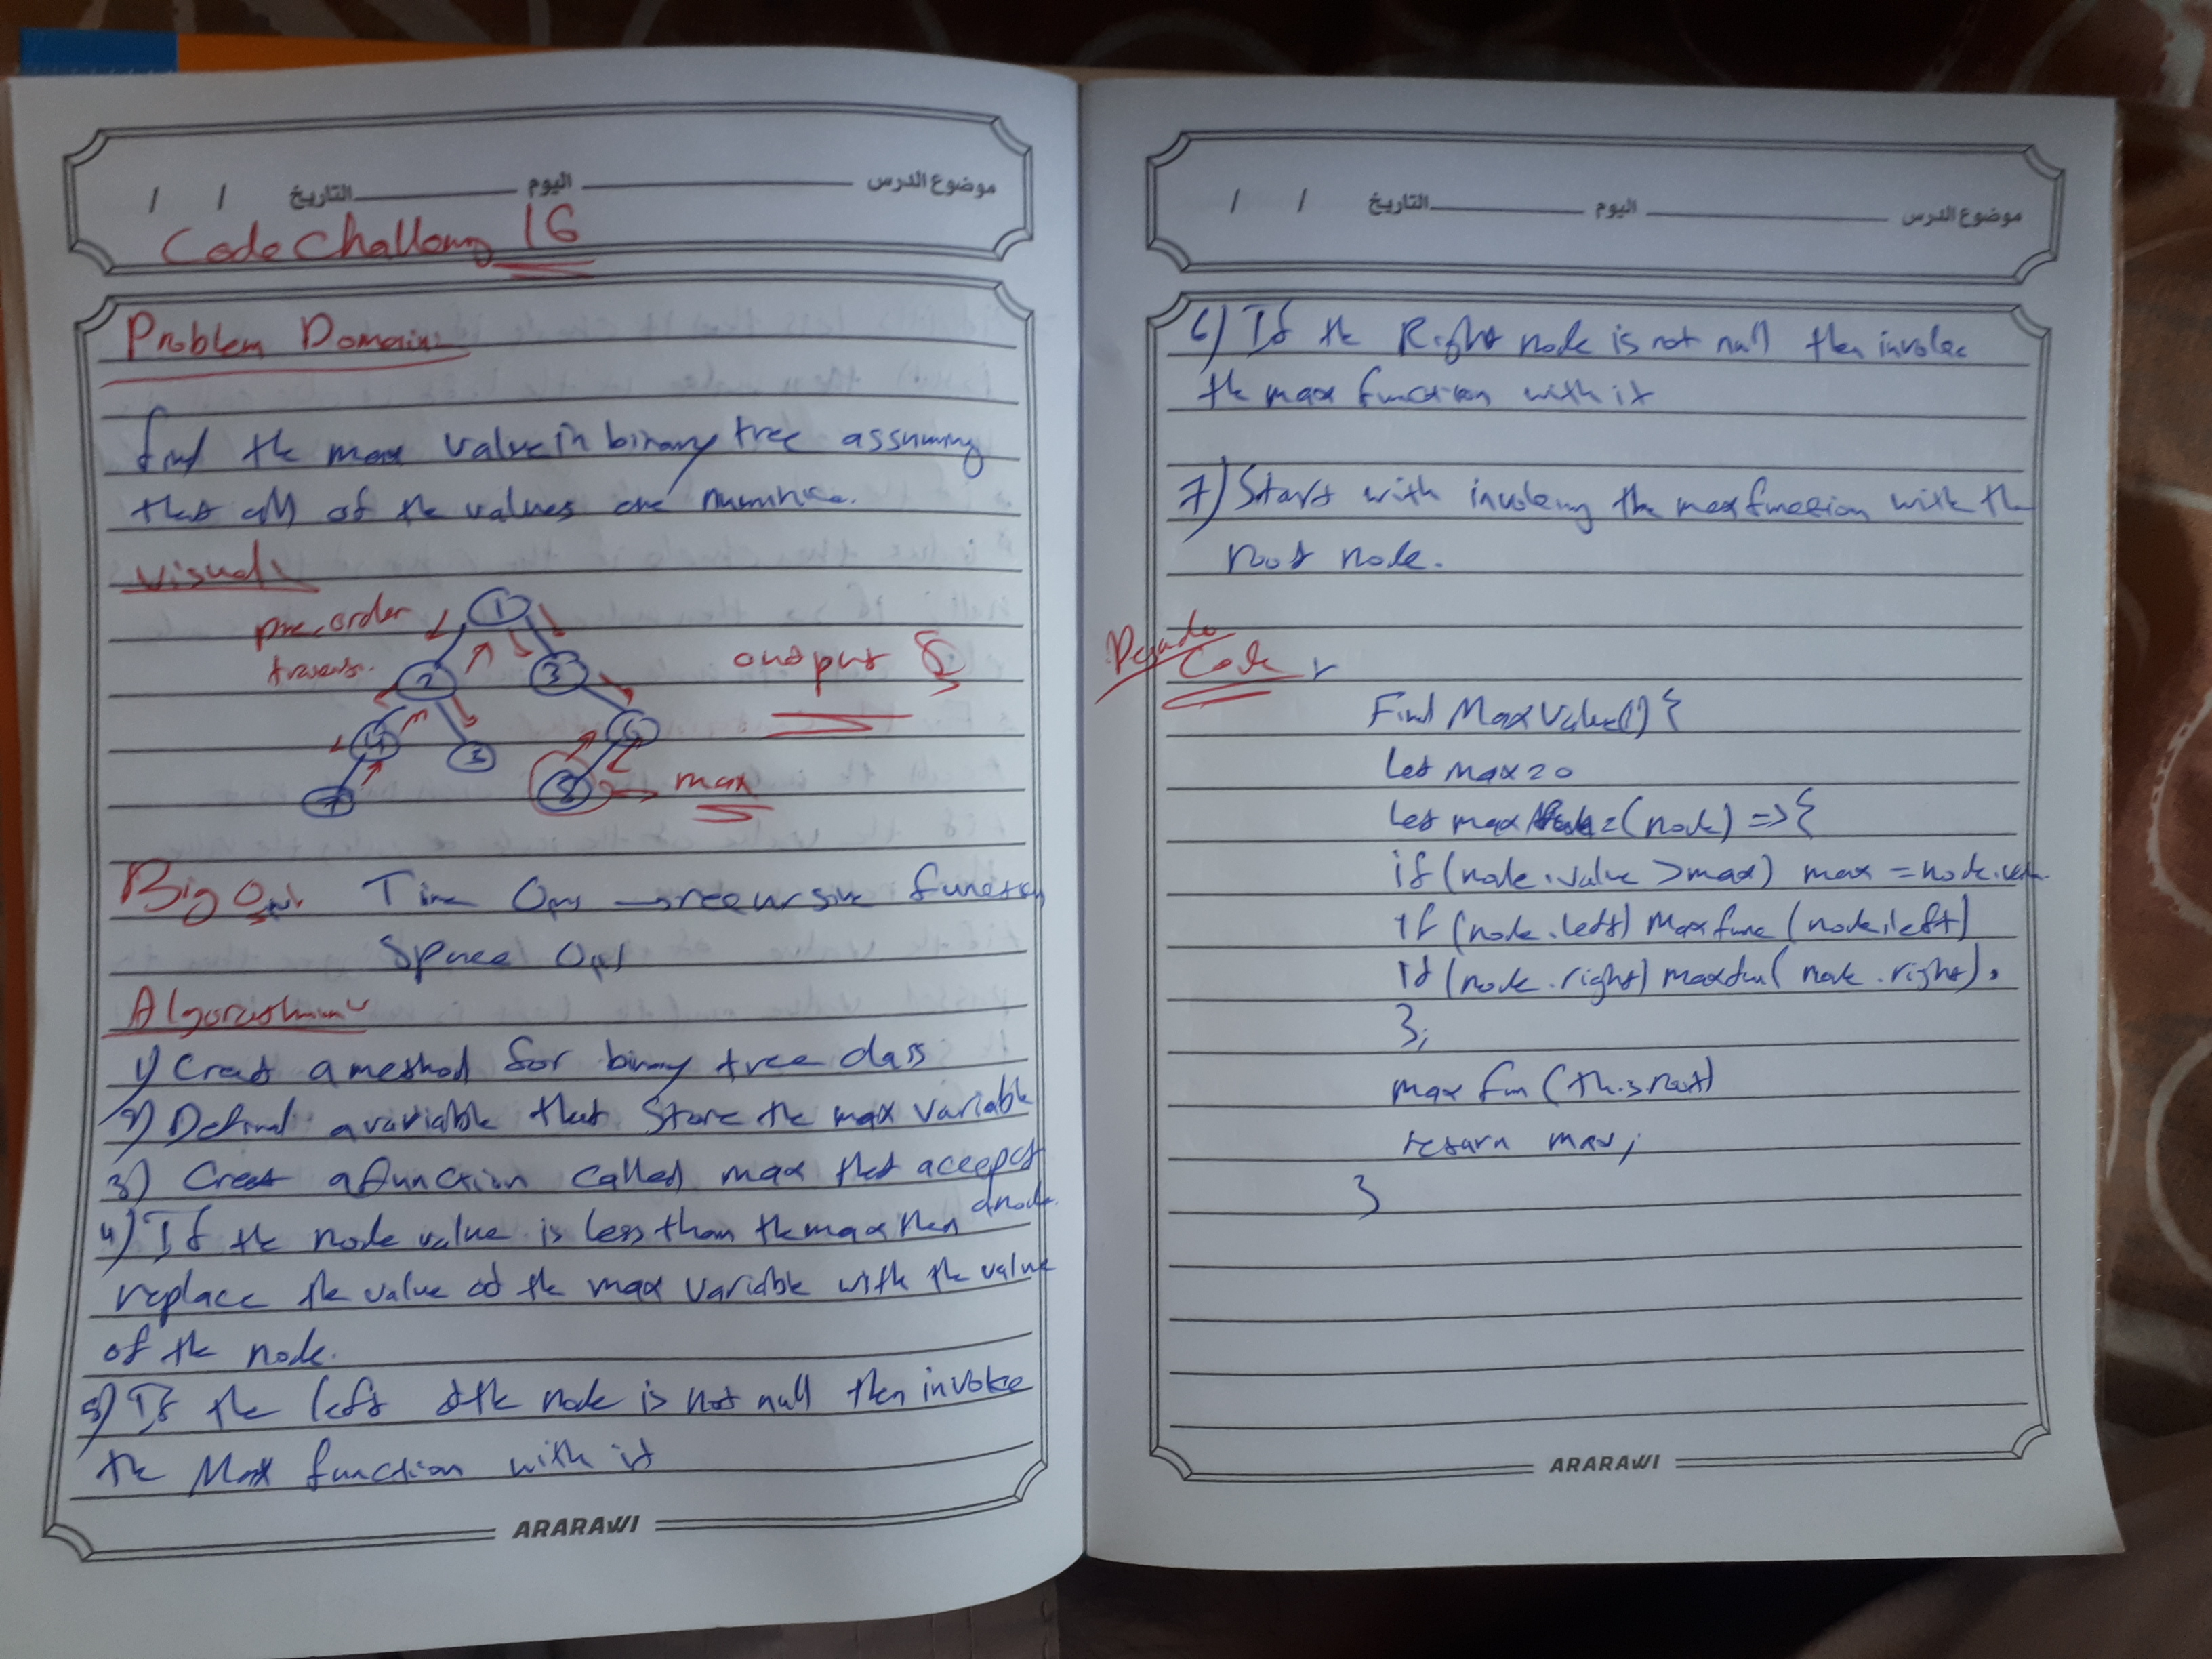 موضوع الدرس اليوم التاريخ / /
Code Challeng 16
Problem Domain:
find the max value in binary tree assuming
that all of the values are
Visual:
pre-order
travers.
1
2
3
output 8
4
6
7
8
max
Big O Time O(n) → recursive function
Space O(n)
Algorithm
1) Creat a method for binary tree class
2) Defind a variable that store the max variable
3) Creat a function called max that accepts
a node.
4) If the node value is less than the max then
replace the value of the max variable with the value
of the node.
5) If the left of the node is not null then invoke
the Max function with it
ARARAWI
موضوع الدرس اليوم التاريخ / /
6) If the Right node is not null then invoke
the max function with it
7) Start with invoking the max function with the
root node.
Code
Find MaxValue() {
let max = 0
let max = (node) => {
if (node.value > max) max = node.value
If (node.left) Maxfunc (node.left)
If (node.right) maxfun( node.right);
};
max fun (this.root)
return max;
}
ARARAWI